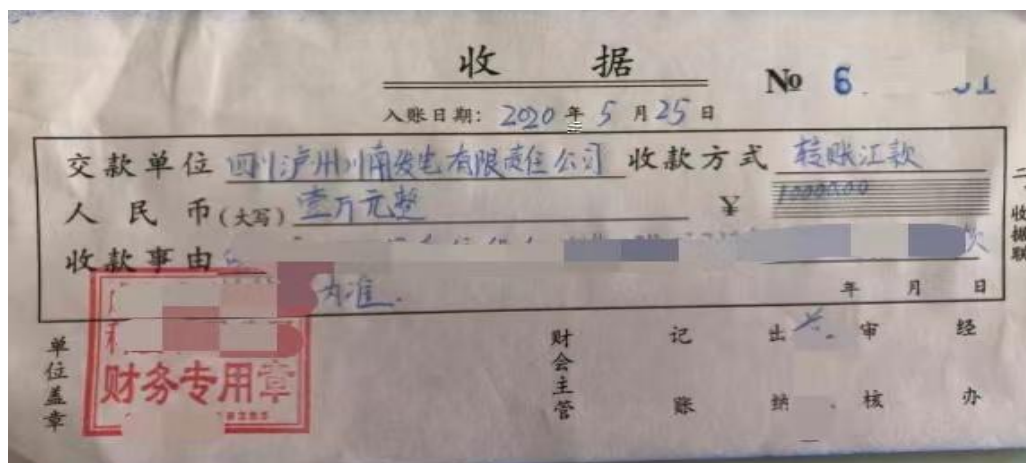 收 据
No 6
入账日期: 2020年5月25日
交款单位 四川泸州川南发电有限责任公司 收款方式 转账汇款
人民币(大写) 壹万元整 ¥ 10000.00
收款事由
为准.
年 月 日
二 收据联
单位盖章
财务专用章
财会主管
记账
出纳
审核
经办